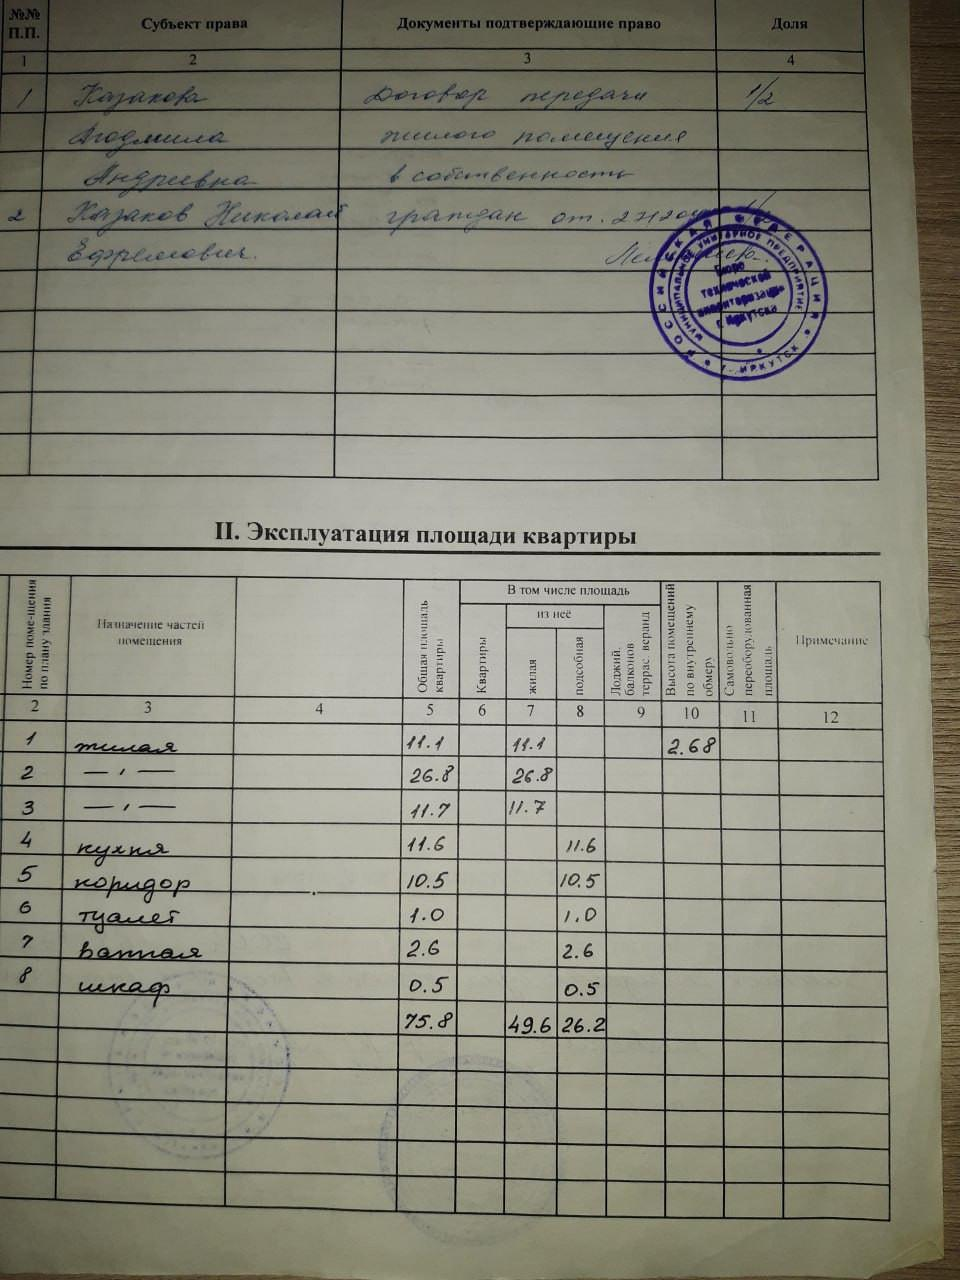 №№ П.П. Субъект права Документы подтверждающие право Доля
1 2 3 4
1 Казакова Договор передачи 1/2
Людмила жилого помещения
Андреевна в собственность
2 Казаков Николай граждан от
Ефремович.
РОССИЙСКАЯ ФЕДЕРАЦИЯ
МУНИЦИПАЛЬНОЕ УНИТАРНОЕ ПРЕДПРИЯТИЕ
Бюро
технической
инвентаризации
г. Иркутска
г. ИРКУТСК
II. Эксплуатация площади квартиры
Номер поме-щения по плану здания
Назначение частей помещения
Общая площадь квартиры
В том числе площадь
Квартиры
из неё
жилая
подсобная
Лоджий. балконов террас веранд
Высота помещений по внутреннему обмеру
Самовольно переоборудованная площадь
Примечание
2 3 4 5 6 7 8 9 10 11 12
1 жилая 11.1 11.1 2.68
2 — , — 26.8 26.8
3 — , — 11.7 11.7
4 кухня 11.6 11.6
5 коридор 10.5 10.5
6 туалет 1.0 1.0
7 ванная 2.6 2.6
8 шкаф 0.5 0.5
75.8 49.6 26.2